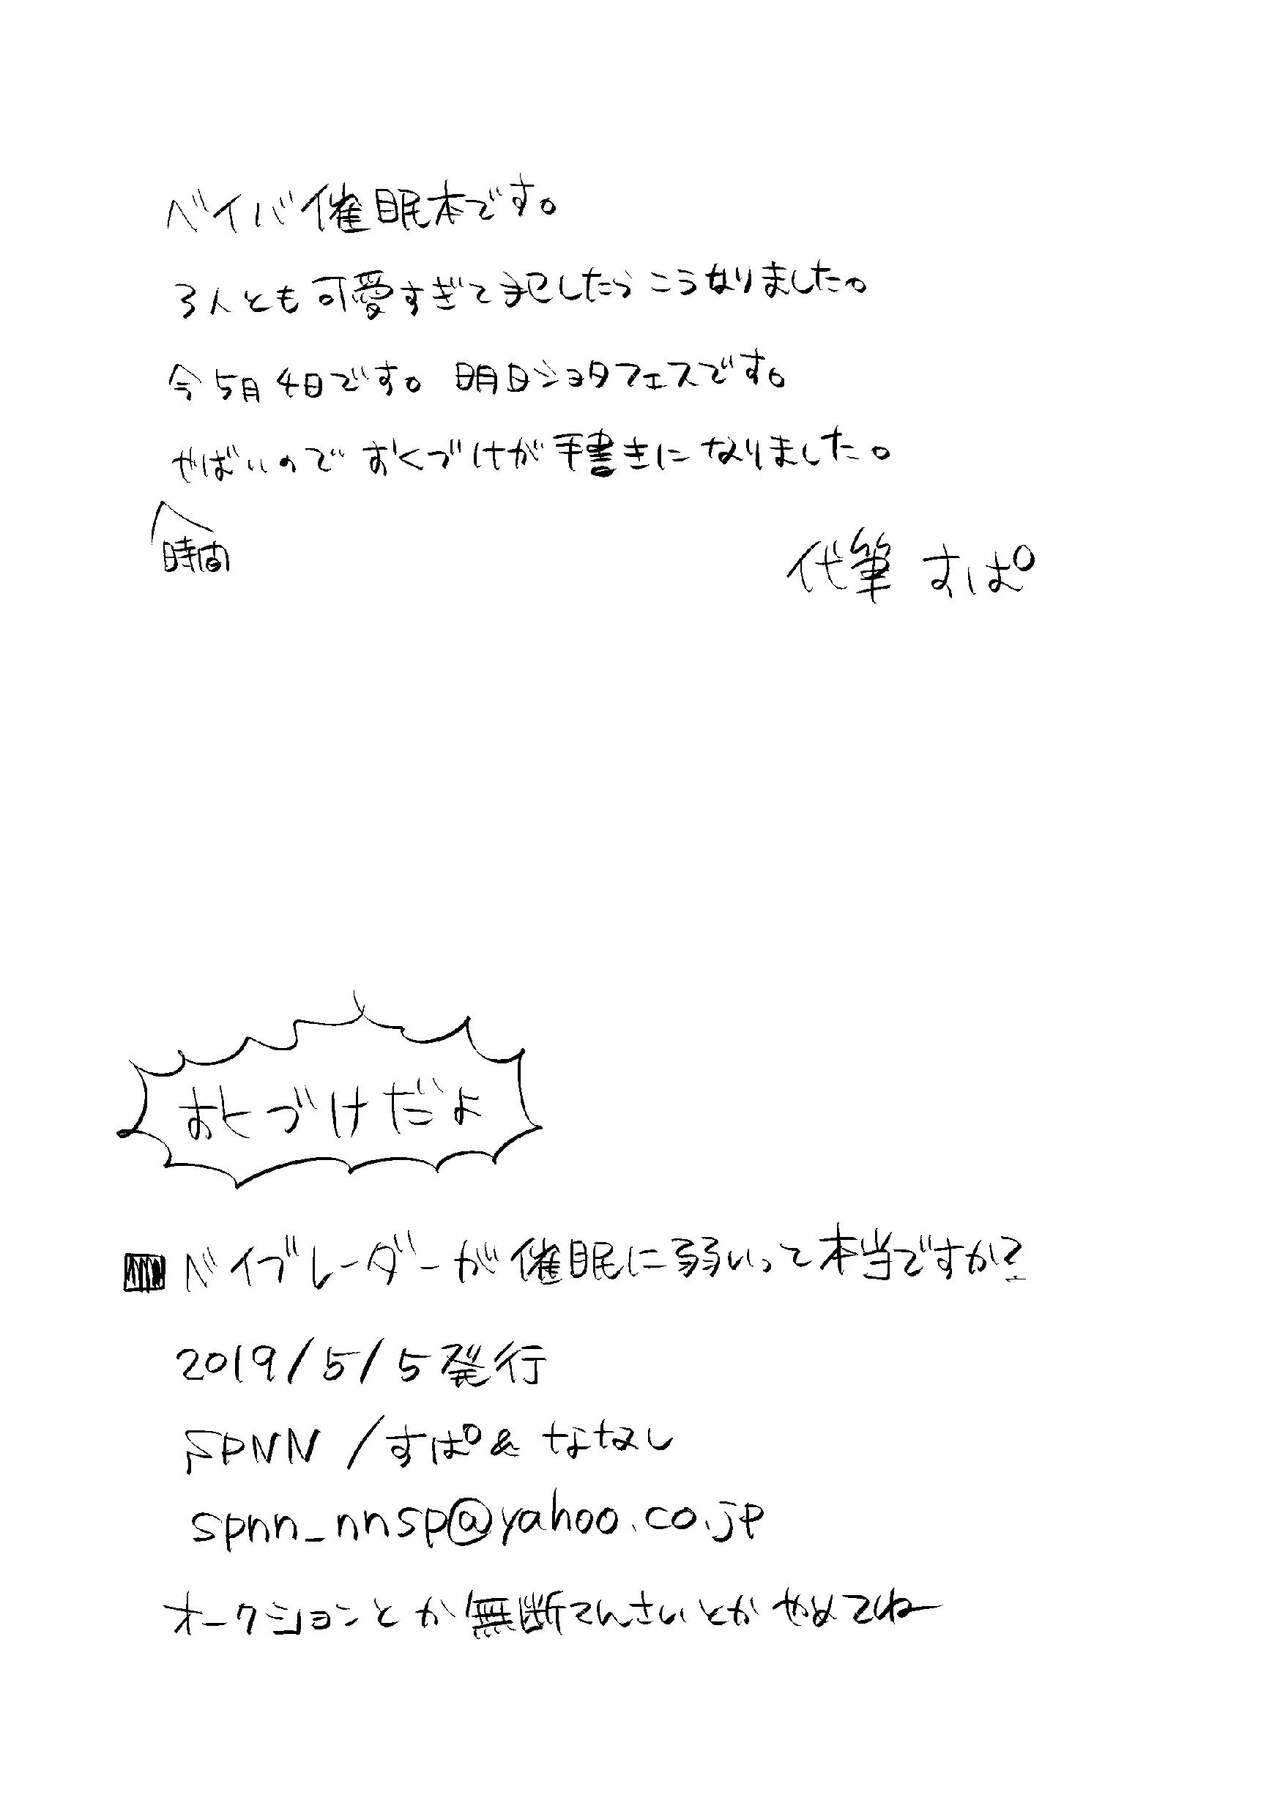 ベイバ催眠本です。
3人とも可愛すぎて したらこうなりました。
今5月4日です。明日ショタフェスです。
やばいので おくづけが手書きになりました。
時間
代筆 すぱ
おくづけだよ
ベイブレーダーが催眠に弱いって本当ですか?
2019/5/5発行
SPNN/すぱ&ななし
spnn_nnsp@yahoo.co.jp
オークションとか無断てんさいとかやめてね